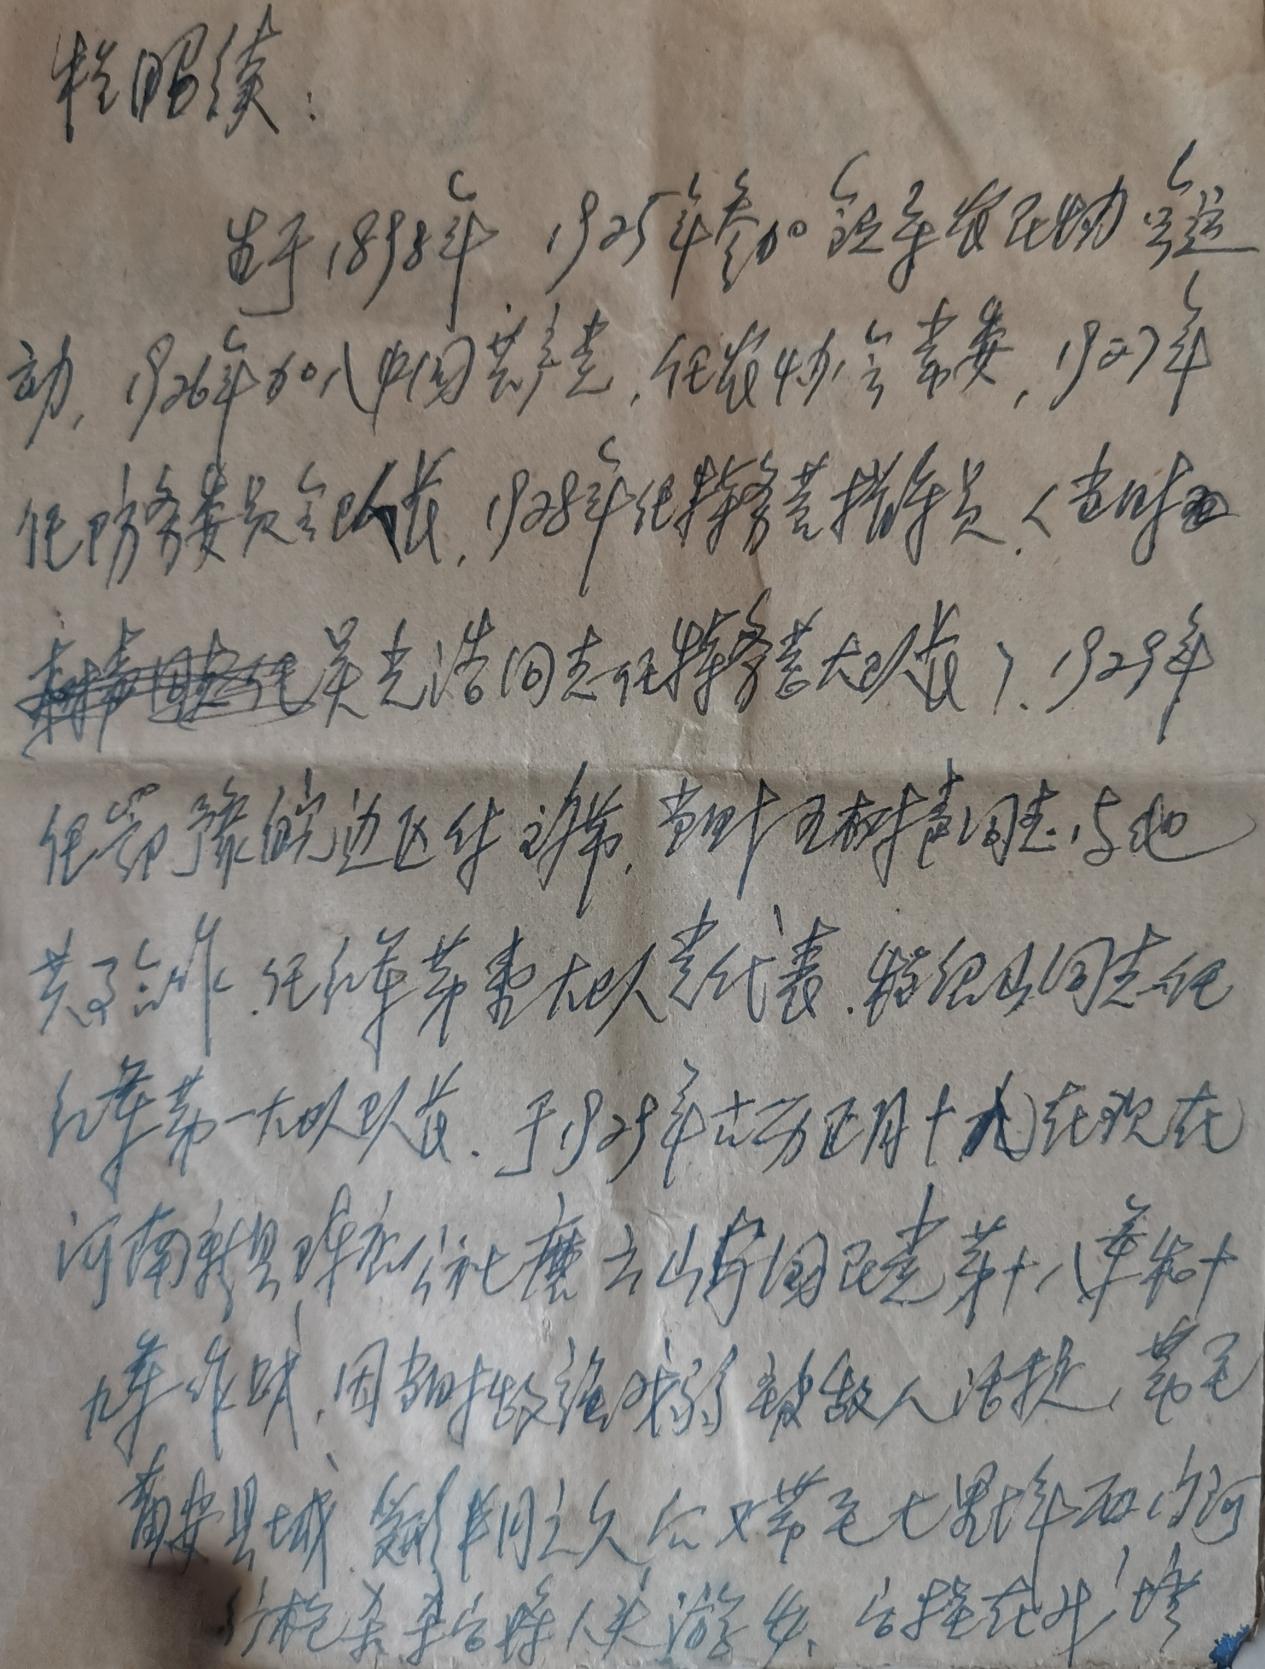 昭绩：
生于1898年，1925年参加铁寺农民协会运
动，1926年加入中国共产党，任农协会常委，1927年
任防务委员会队长，1928年任特务营指导员，（当时
吴光浩同志任特务营大队长），1929年
任鄂豫皖边区付主席，当时王树声同志与他
共了工作，任红军第 大队党代表，同志任
红军第一大队队长。于1929年古历正月十九在现在
河南新县陈店公社 云山与国民党第十八军和十
九军作战，因当时敌强我弱被敌人活捉，带至
黄安县城，受刑半月之久后又带至七里坪西的河
行枪杀，杀害后将人头游乡，后挂在